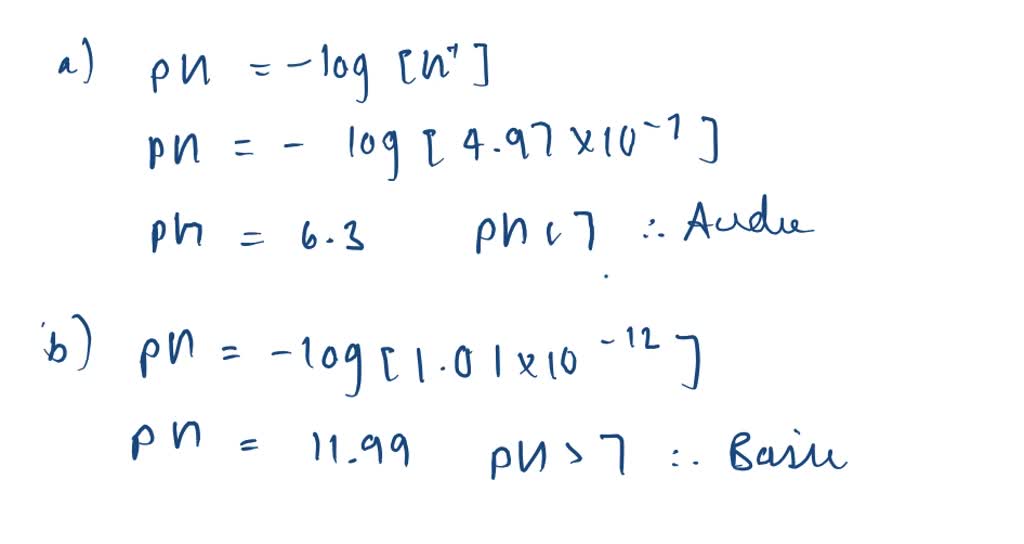 a) pH = -log [H⁺]
pH = - log [ 4.97 x10⁻⁷ ]
pH = 6.3 pH < 7 ∴ Acidic
b) pH = -log [ 1.01 x10⁻¹² ]
pH = 11.99 pH > 7 ∴ Basic